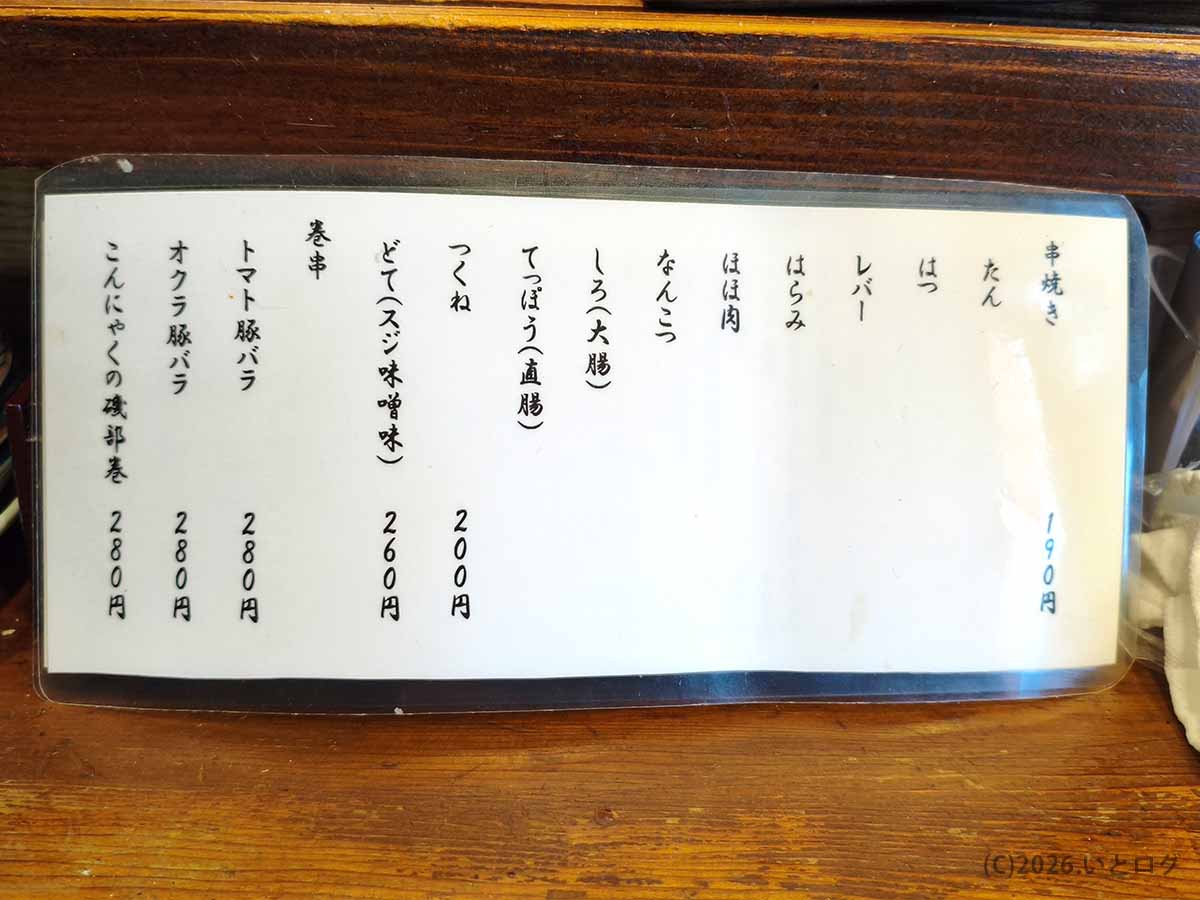 串焼き 190円
たん
はつ
レバー
はらみ
ほほ肉
なんこつ
しろ(大腸)
てっぽう(直腸)
つくね 200円
どて(スジ味噌味) 260円
巻串
トマト豚バラ 280円
オクラ豚バラ 280円
こんにゃくの磯部巻 280円
(C)2026.いとログ